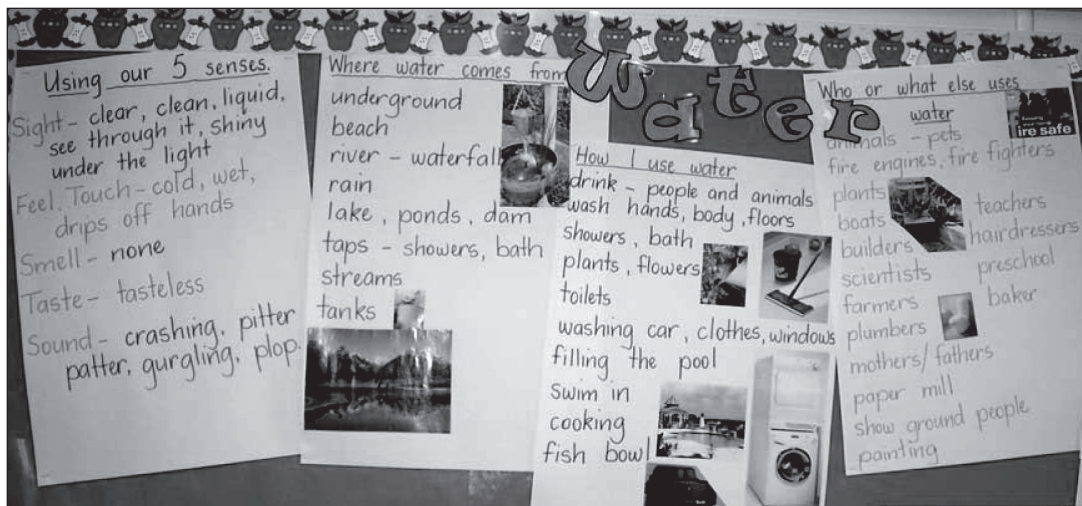 Water
Using our 5 senses.
Sight - clear, clean, liquid,
see through it, shiny
under the light
Feel, Touch - cold, wet,
drips off hands
Smell - none
Taste - tasteless
Sound - crashing, pitter
patter, gurgling, plop.
Where water comes from
underground
beach
river - waterfall
rain
lake, ponds, dam
taps - showers, bath
streams
tanks
How I use water
drink - people and animals
wash hands, body, floors
showers, bath
plants, flowers
toilets
washing car, clothes, windows
filling the pool
swim in
cooking
fish bowl
Who or what else uses
water
ire safe
animals - pets
fire engines, fire fighters
plants
teachers
boats
hairdressers
builders
scientists
preschool
farmers
baker
plumbers
mothers/fathers
paper mill
show ground people
painting